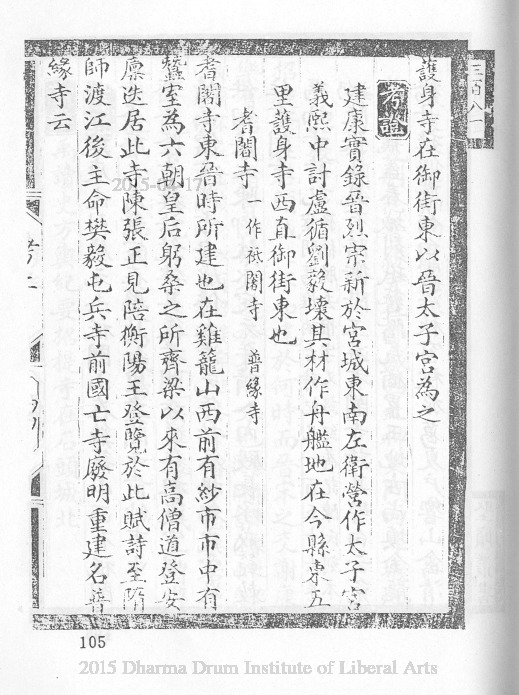 三百八一
護身寺在御街東以晉太子宮為之
考證
建康實錄晉烈宗新於宮城東南左衛營作太子宮
義熙中討盧循劉毅壞其材作舟艦地在今縣東五
里護身寺西直御街東也
耆闍寺 一作祇闍寺 普緣寺
耆闍寺東晉時所建也在雞籠山西前有紗市市中有
蠶室為六朝皇后躬桑之所齊梁以來有高僧道登安
廩迭居此寺陳張正見陪衡陽王登覽於此賦詩至隋
師渡江後主命樊毅屯兵寺前國亡寺廢明重建名普
緣寺云
105
2015 Dharma Drum Institute of Liberal Arts